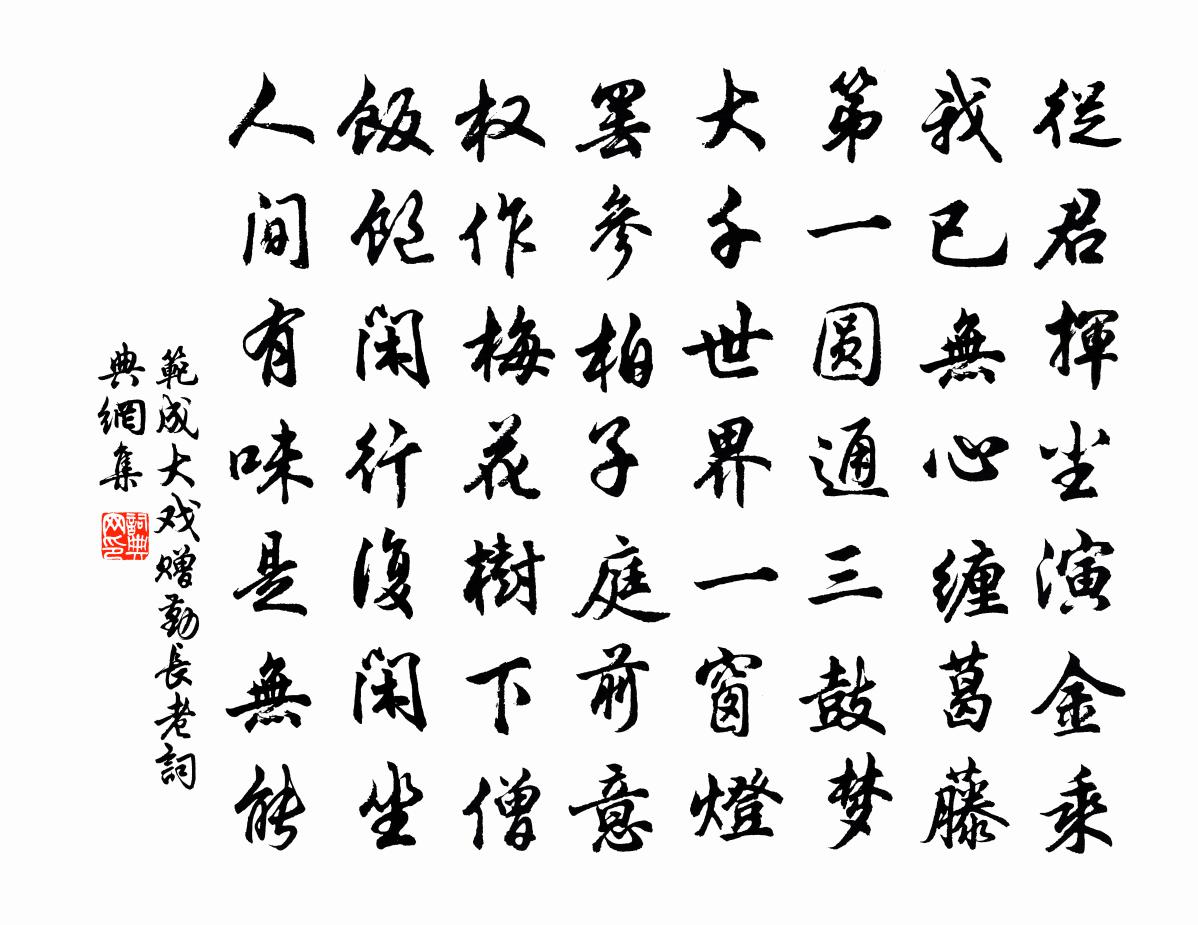 從君揮尘演金乘
我已無心缠葛藤
第一圆通三鼓梦
大千世界一窗燈
罢參柏子庭前意
权作梅花樹下僧
飯飽闲行復闲坐
人间有味是無能
範成大戏赠勤長老詞
典網集
詞典
网印